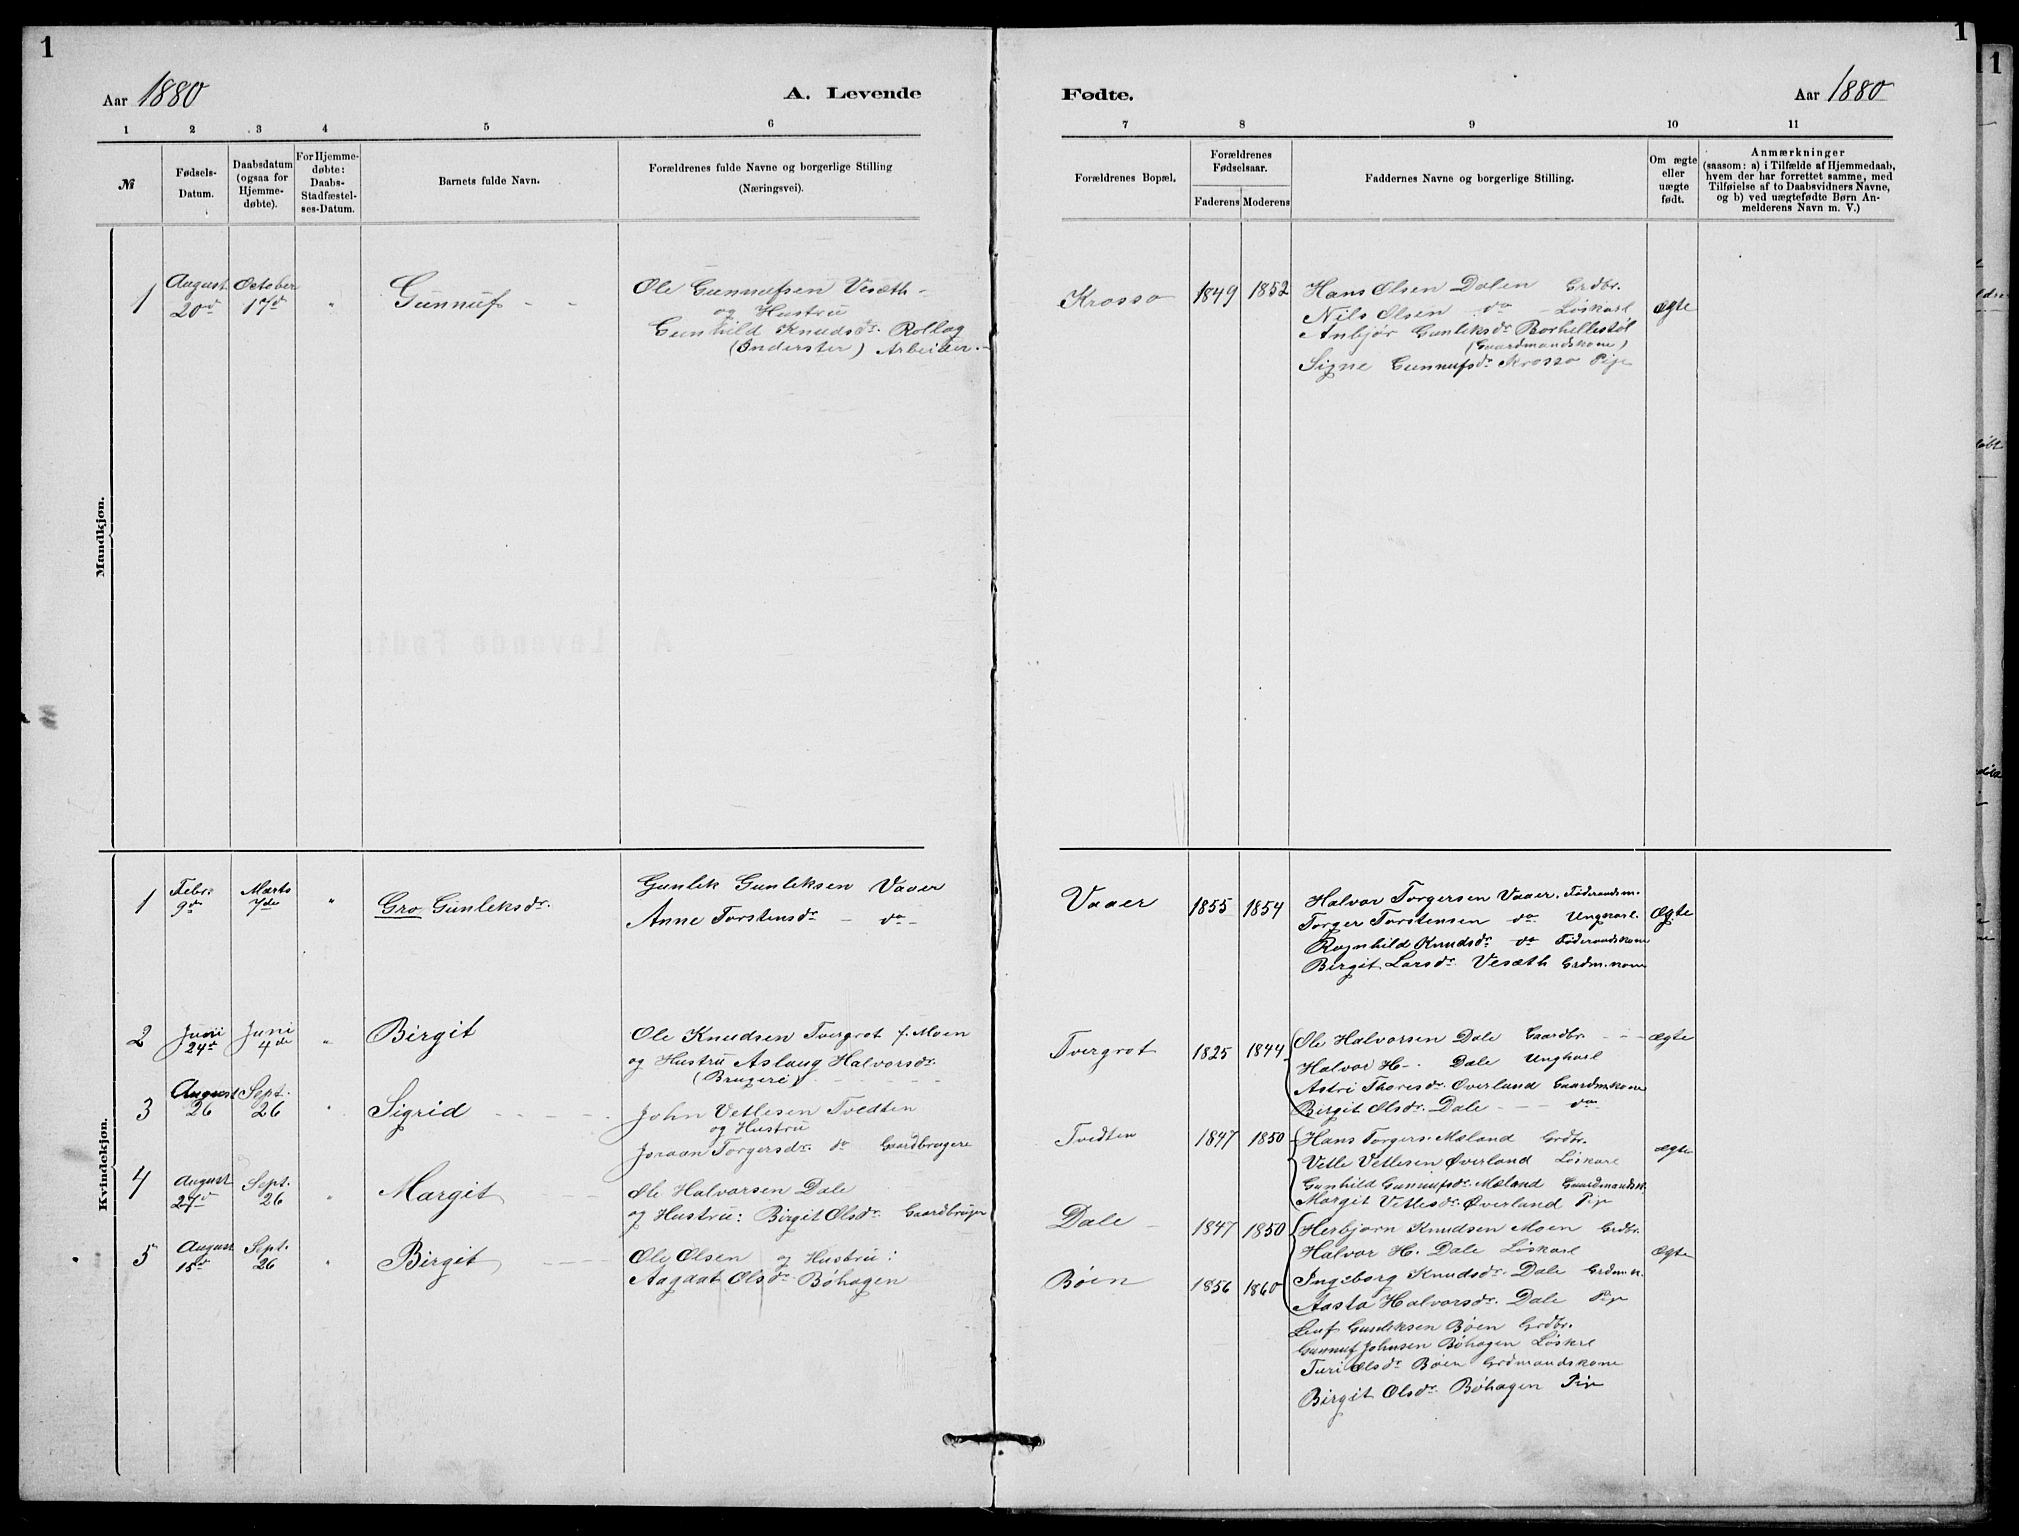 1
1
1
Aar 1880
A. Levende
Fødte.
Aar 1880
1 2 3 4 5 6
7 8 9 10 11
№
Fødsels-
Datum.
Daabsdatum
(ogsaa for
Hjemme-
døbte).
For Hjemme-
døbte:
Daabs-
Stadfæstel-
ses-Datum.
Barnets fulde Navn.
Forældrenes fulde Navne og borgerlige Stilling
(Næringsvei).
Forældrenes Bopæl.
Forældrenes
Fødselsaar.
Faderens Moderens
Faddernes Navne og borgerlige Stilling.
Om ægte
eller
uægte
født.
Anmærkninger
(saasom: a) i Tilfælde af Hjemmedaab,
hvem der har forrettet samme, med
Tilføielse af to Daabsvidners Navne,
og b) ved uægtefødte Børn An-
melderens Navn m. V.)
Mandkjøn.
1
August
20de
October
17de
"
Gunnuf - -
Ole Gunnufsen Vesæth -
og Hustru
Gunhild Knudsdr. Rollag
(Inderster) Arbeider. -
Krosso
1849
1852
Hans Olsen Dalen Grdbr.
Nils Olsen do - Løskarl
Anbjør Gunleksdr Borhellestøl
(Gaardmandskone)
Signe Gunnufsdr Krosso Pige
Ægte
Kvindekjøn.
1
Febr.
9de
Marts
7de
"
Gro Gunleksdr.
Gunlek Gunleksen Vaaer
Anne Torstensdr - do -
Vaaer
1855
1854
Halvor Torgersen Vaaer. Føderaadsm.
Torger Torstensen do Ungkarl.
Ragnhild Knudsdr do Føderaadskone
Birgit Larsdr. Vesæth Grdm.kone
Ægte
2
Juni
24de
Juni
4de
"
Birgit
Ole Knudsen Tvergrot f. Moen
og Hustru Aslaug Halvorsdr.
(Brugere)
Tvergrot
1825
1844
Ole Halvorsen Dale Gaardbr. - - -
Halvor H-. Dale Ungkarl
Astri Thoresdr. Øverland Gaardm.kone
Birgit Olsdr. Dale - - - do
Ægte
3
August
26
Sept.
26
"
Sigrid - - - - -
John Vetlesen Tvedten
og Hustru
Joraan Torgersdr. do Gaardbrugere
Tvedten
1847
1850
Hans Torgers. Mæland Grdbr.
Vetle Vetlesen Øverland Løskarl
Gunhild Gunnufsdr. Mæland Gaardmandsk.
Margit Vetlesdr. Øverland Pige
Ægte
4
August
27de
Sept.
26
"
Margit - - -
Ole Halvorsen Dale
og Hustru: Birgit Olsdr. Gaardbruger
Dale -
1847
1850
Herbjørn Knudsen Moen Grdbr.
Halvor H. Dale Løskarl
Ingeborg Knudsdr. Dale Grdm.k.
Aasta Halvorsdr. Dale Pige
Ægte
5
August
15de
Sept.
26
"
Birgit - - - -
Ole Olsen og Hustru:
Aagaat Olsdr Bøhagen
Bøen
1856
1860
Leuf Gunleksen Bøen Grdbr.
Gunnuf Johnsen Bøhagen Løskrl
Turi Olsdr Bøen Grdmandskone
Birgit Olsdr. Bøhagen Pige